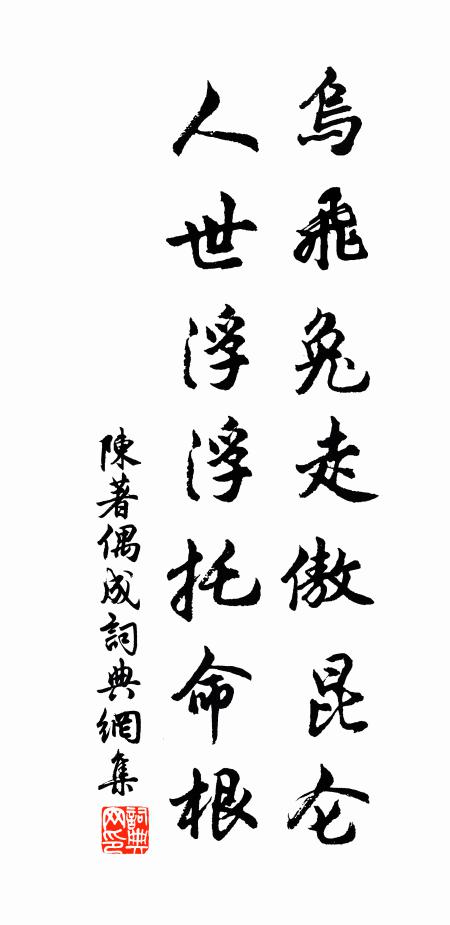 烏飛兔走傲昆仑
人世浮浮托命根
陳著偶成詞典網集
詞典网印